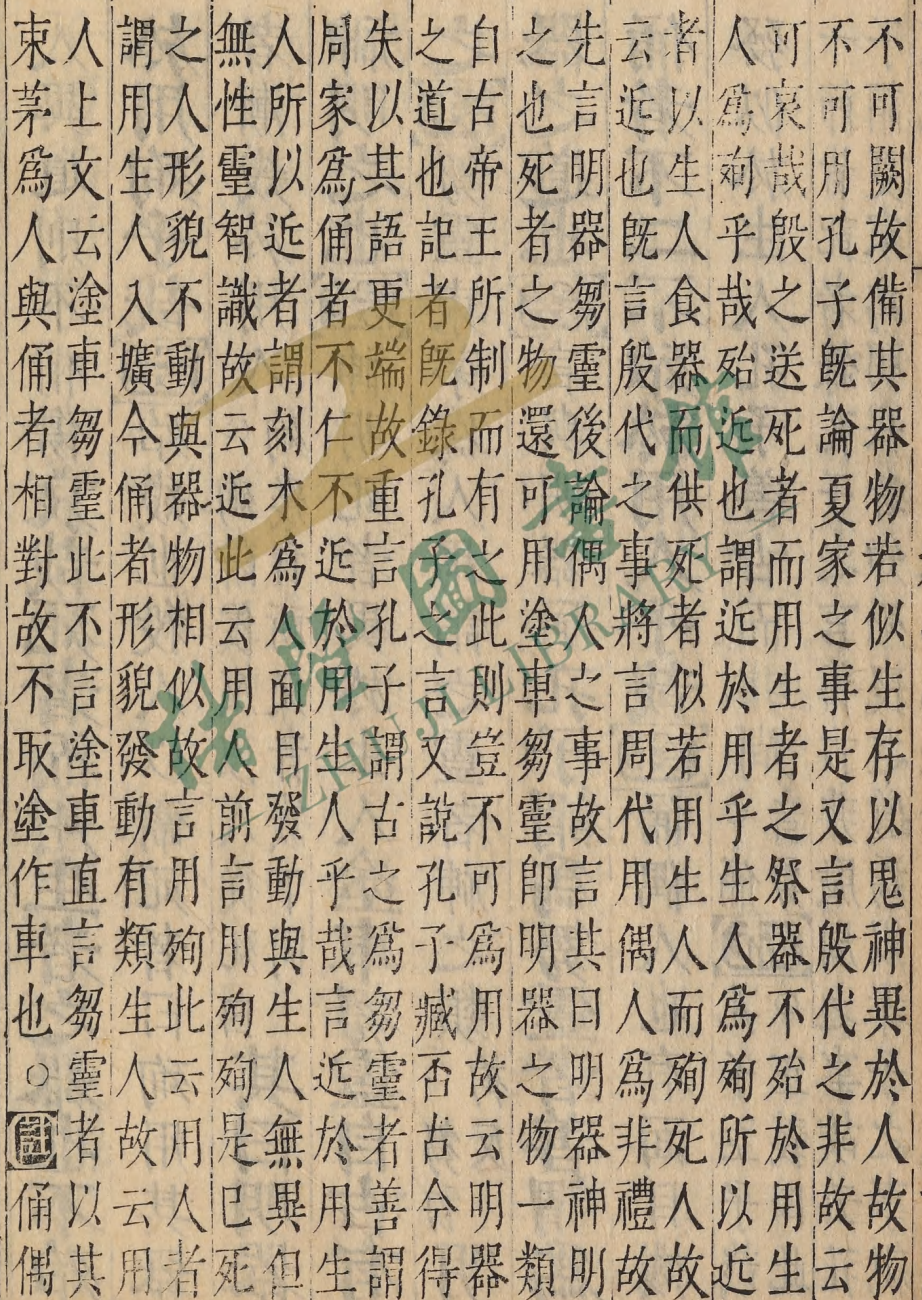 不可闕故備其器物若似生存以鬼神異於人故物
不可用孔子旣論夏家之事是又言殷代之非故云
可哀哉殷之送死者而用生者之祭器不殆於用生
人爲殉乎哉殆近也謂近於用乎生人爲殉所以近
者以生人食器而供死者似若用生人而殉死人故
云近也旣言殷代之事將言周代用偶人爲非禮故
先言明器芻靈後論偶人之事故言其曰明器神明
之也死者之物還可用塗車芻靈卽明器之物一類
自古帝王所制而有之此則豈不可爲用故云明器
之道也記者旣錄孔子之言又說孔子臧否古今得
失以其語更端故重言孔子謂古之爲芻靈者善謂
周家爲俑者不仁不近於用生人乎哉言近於用生
人所以近者謂刻木爲人面目發動與生人無異但
無性靈智識故云近此云用人前言用殉殉是已死
之人形貌不動與器物相似故言用殉此云用人者
謂用生人入壙今俑者形貌發動有類生人故云用
人上文云塗車芻靈此不言塗車直言芻靈者以其
束茅爲人與俑者相對故不取塗作車也○俑偶
諸暨圖書館
ZHUJI LIBRARY